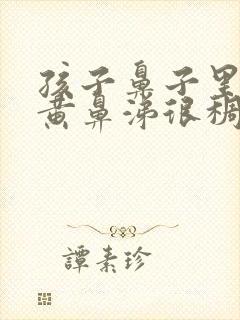 孩子鼻子里
黄鼻涕很稠
譚素珍